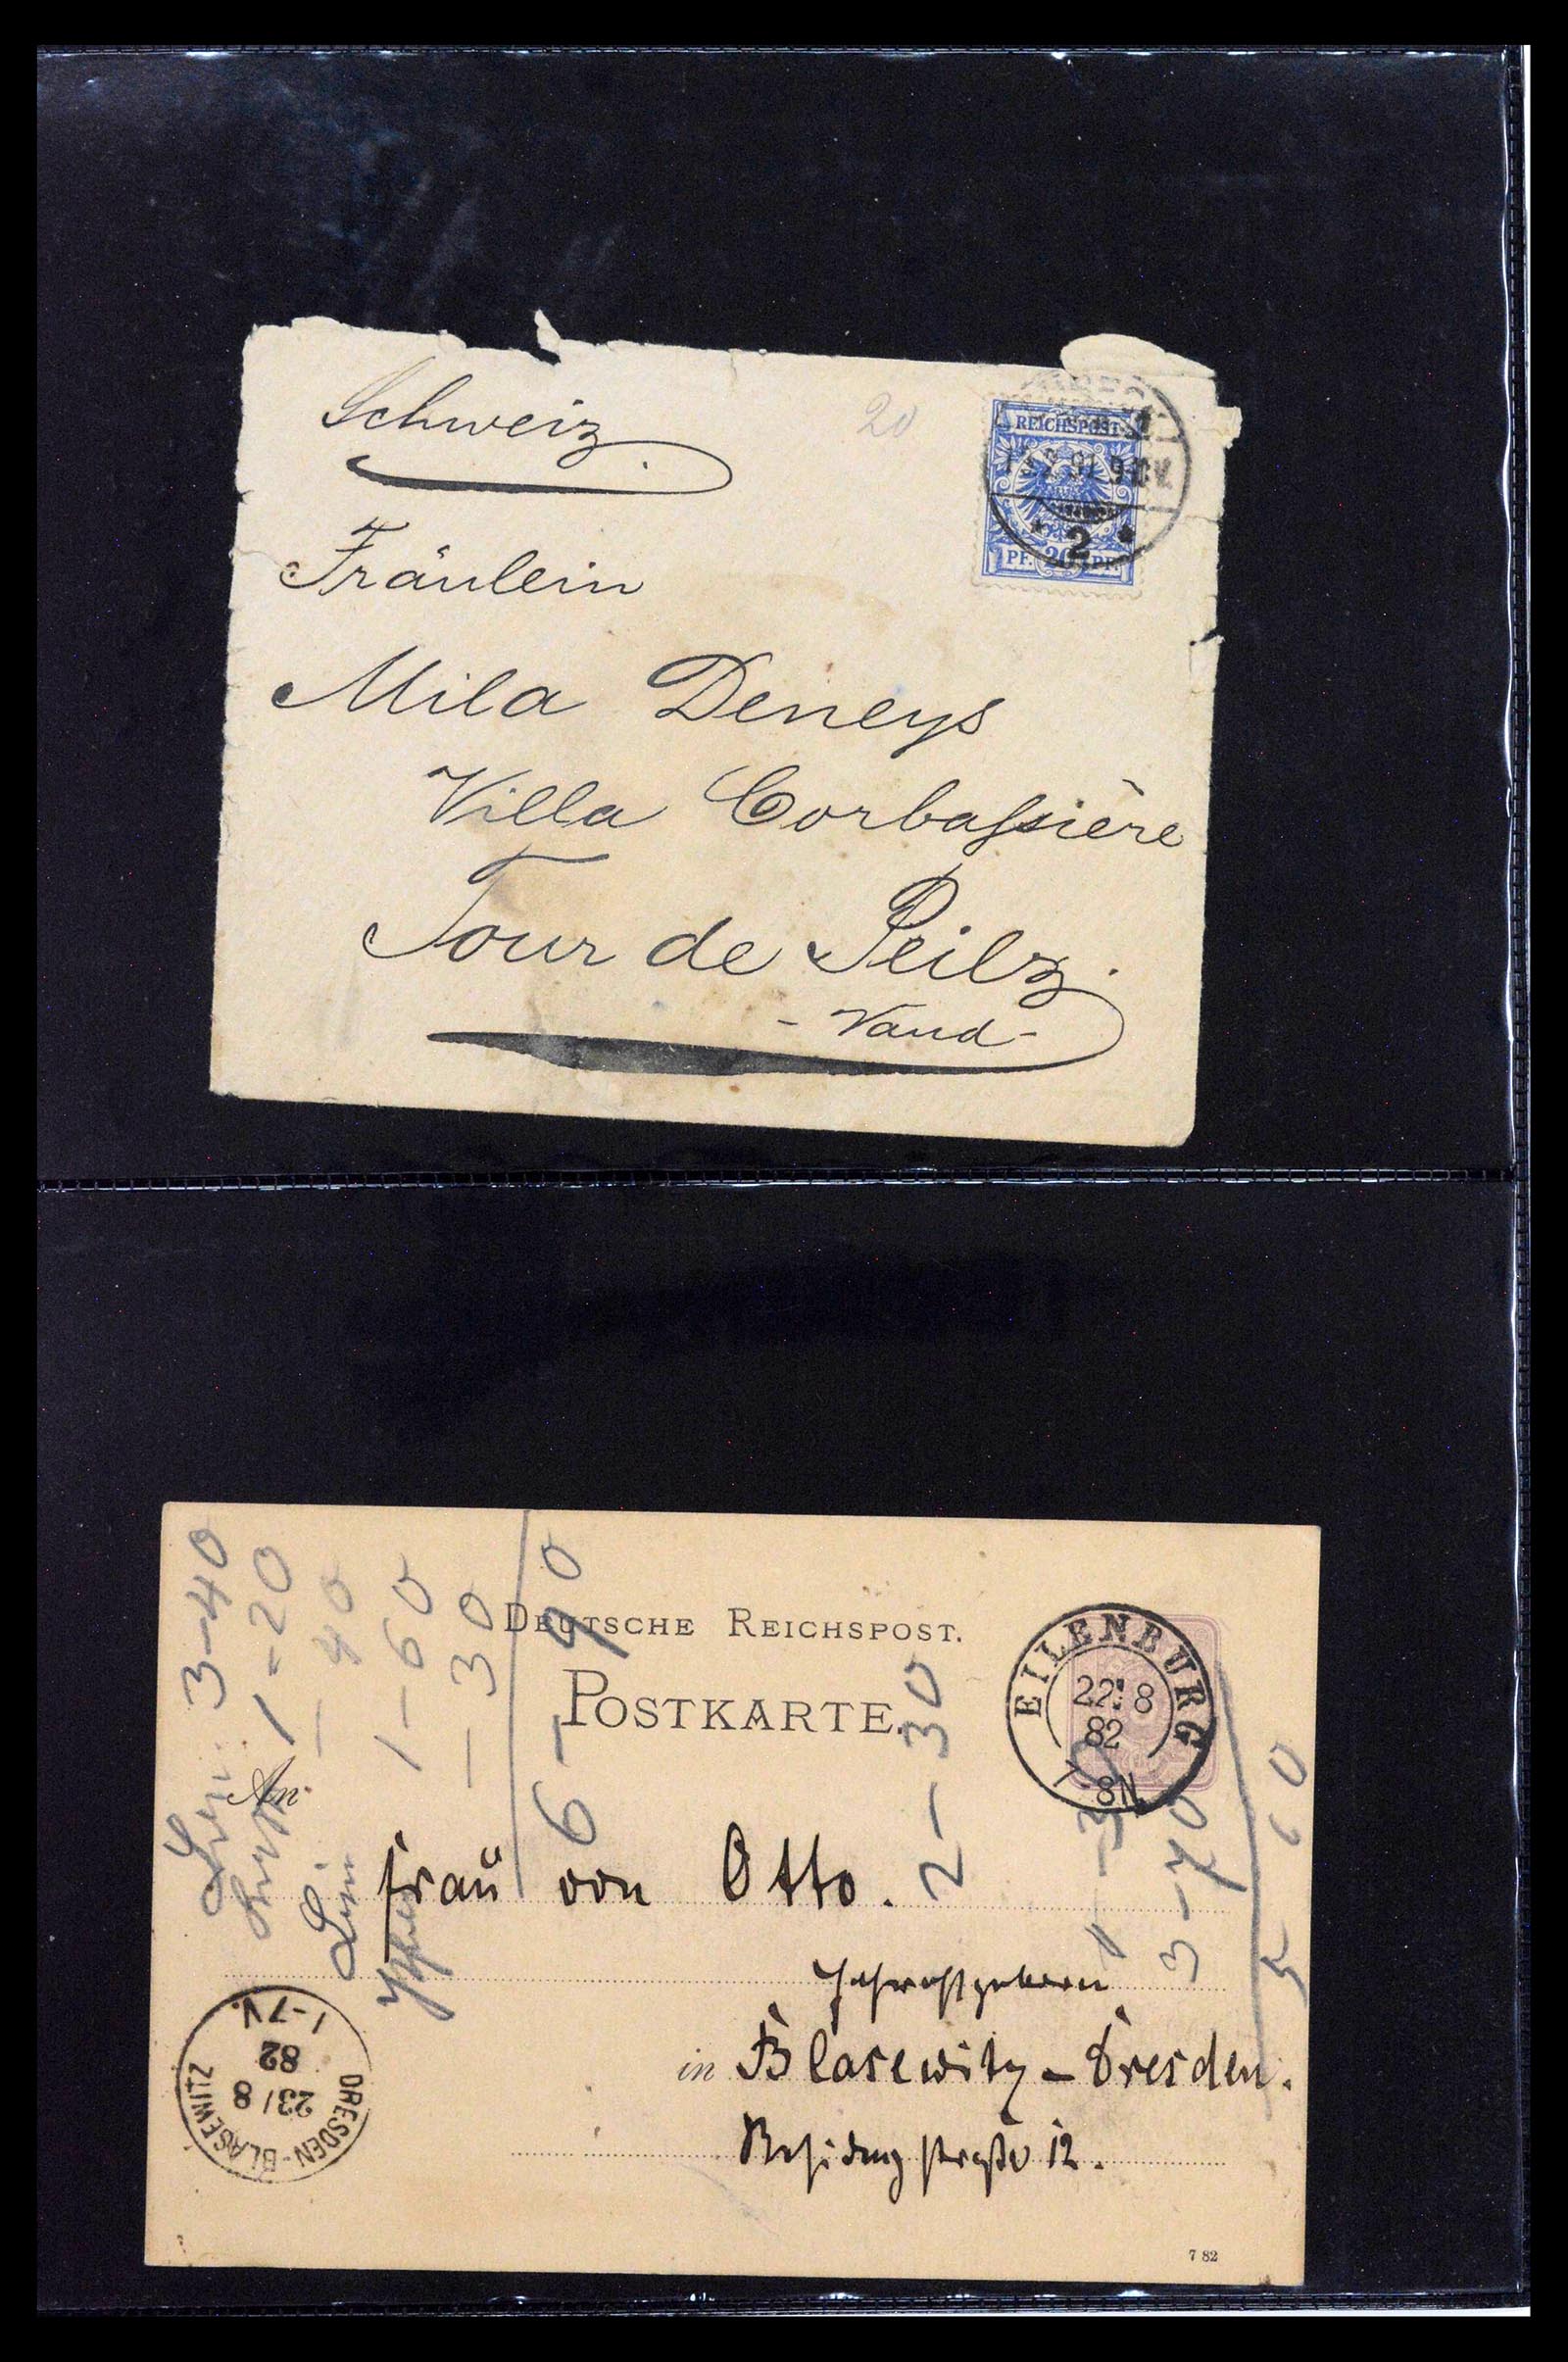 Schweiz
20
REICHSPOST
91 9-10V.
* 2 *
PF. 20 PF.
Fräulein
Mila Deneys
Villa Corbaſsière
Tour de Peilz.
- Vaud -
3-40
1-20
- 40
1-60
- 30
6-90
DEUTSCHE REICHSPOST.
POSTKARTE.
EILENBURG
22 8
82
7-8N.
2-30
3-70
5 60
An
Frau von Otto.
in Blasewitz - Dresden.
Residenzstraße 12.
DRESDEN-BLASEWITZ
23/8
82
1-7V.
7 82